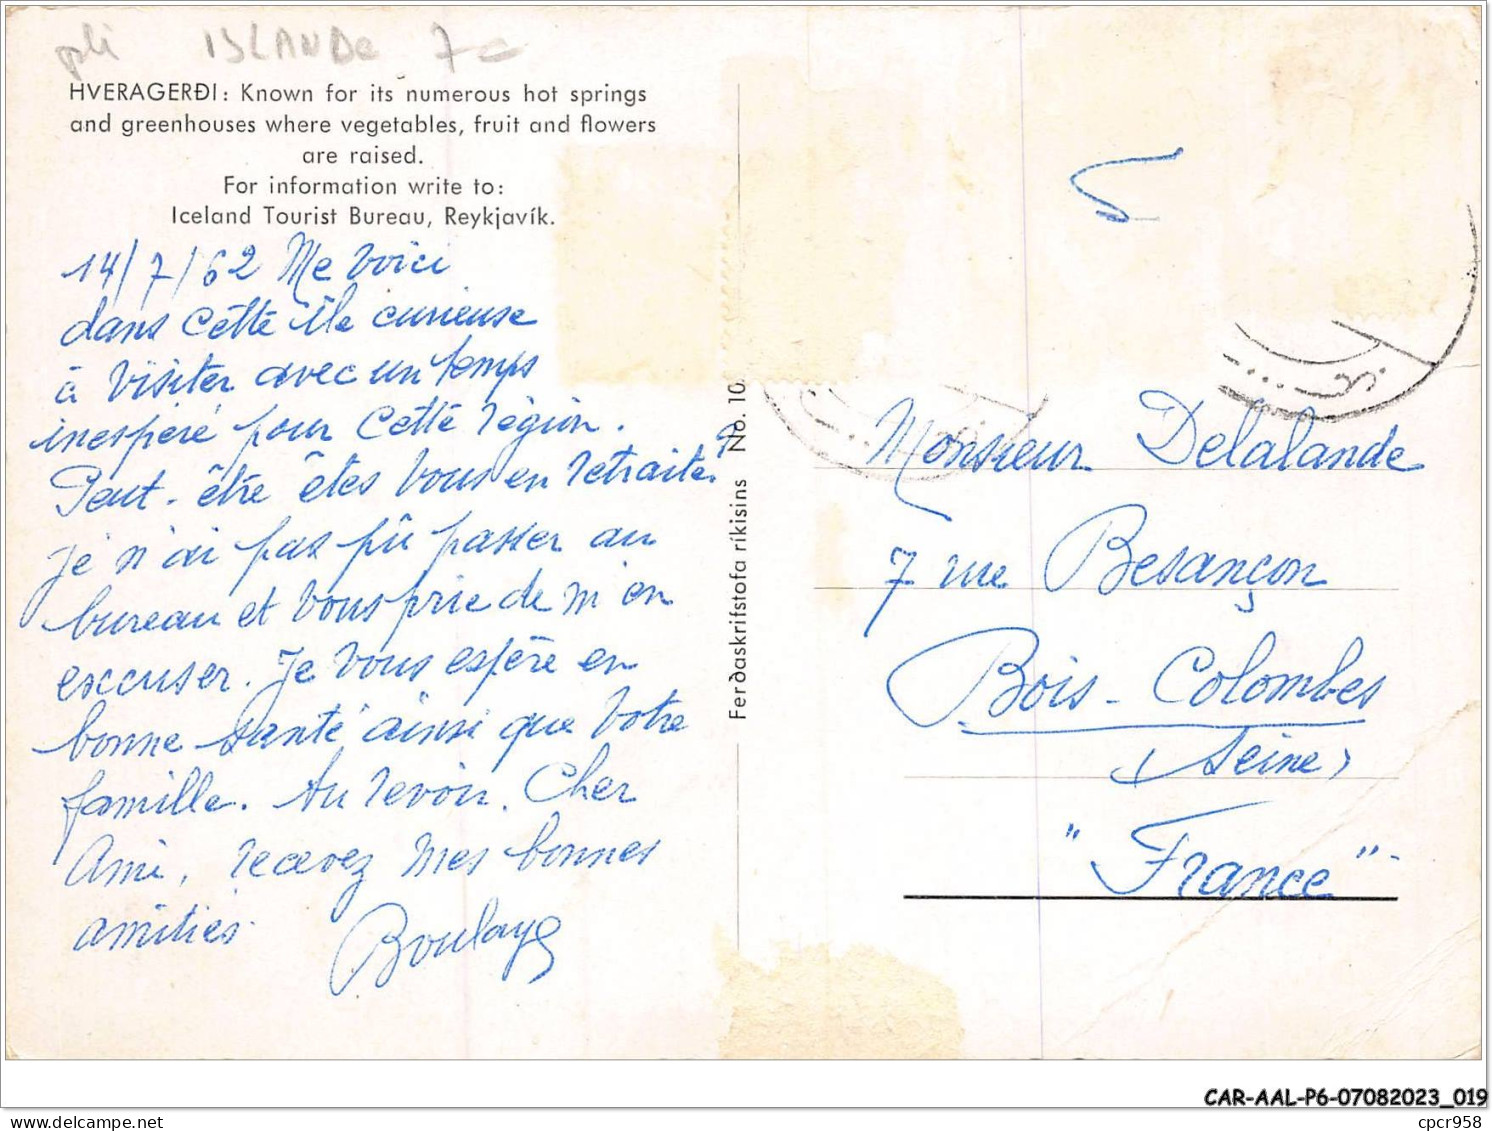 pli ISLANDE 7€
HVERAGERÐI: Known for its numerous hot springs
and greenhouses where vegetables, fruit and flowers
are raised.
For information write to:
Iceland Tourist Bureau, Reykjavík.
14/7/62 Me voici
dans cette île curieuse
à visiter avec un temps
inespéré pour cette région.
Peut-être êtes vous en retraite?
Je n'ai pas pû passer au
bureau et vous prie de m'en
excuser. Je vous espère en
bonne santé ainsi que votre
famille. Au revoir. Cher
Ami, recevez mes bonnes
amitiés.
Boulaye
Ferðaskrifstofa ríkisins No. 10.
Monsieur Delalande
7 rue Besançon
Bois-Colombes
(Seine)
"France"
CAR-AAL-P6-07082023_019
cpcr958